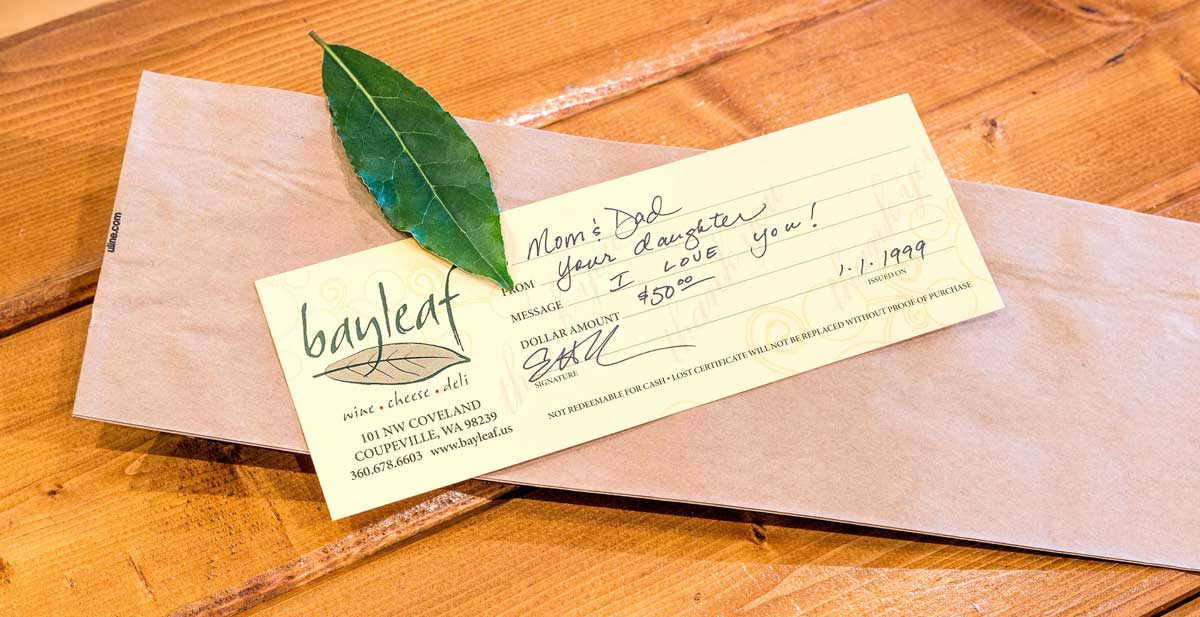 uline.com
bayleaf
wine • cheese • deli
101 NW COVELAND
COUPEVILLE, WA 98239
360.678.6603 www.bayleaf.us
Mom & Dad
FROM your daughter
MESSAGE I LOVE you!
DOLLAR AMOUNT $50.00
1.1.1999
ISSUED ON
SIGNATURE
NOT REDEEMABLE FOR CASH • LOST CERTIFICATE WILL NOT BE REPLACED WITHOUT PROOF OF PURCHASE